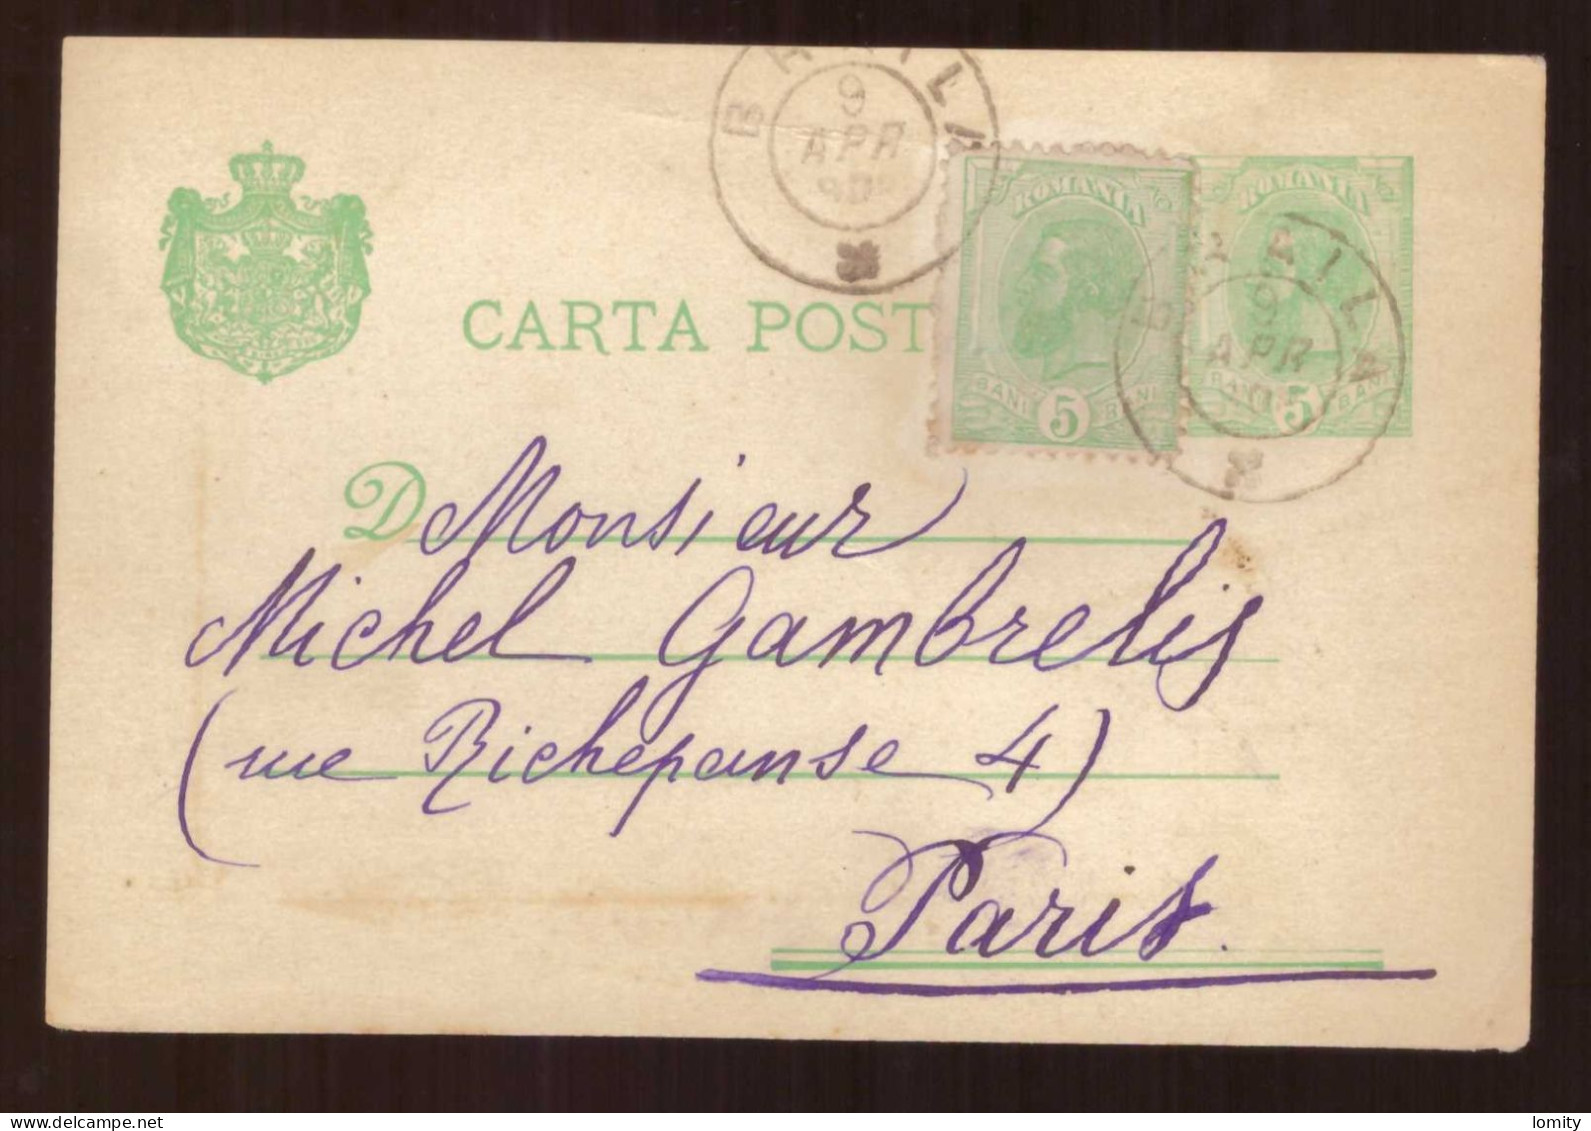 BRAILA
9
APR
ROMANIA
ROMANIA
BRAILA
9
APR
CARTA POST
BANI 5 BANI
BANI 5 BANI
D Monsieur
Michel Gambrelis
(rue Richepanse 4)
Paris.
www.delcampe.net
lomity